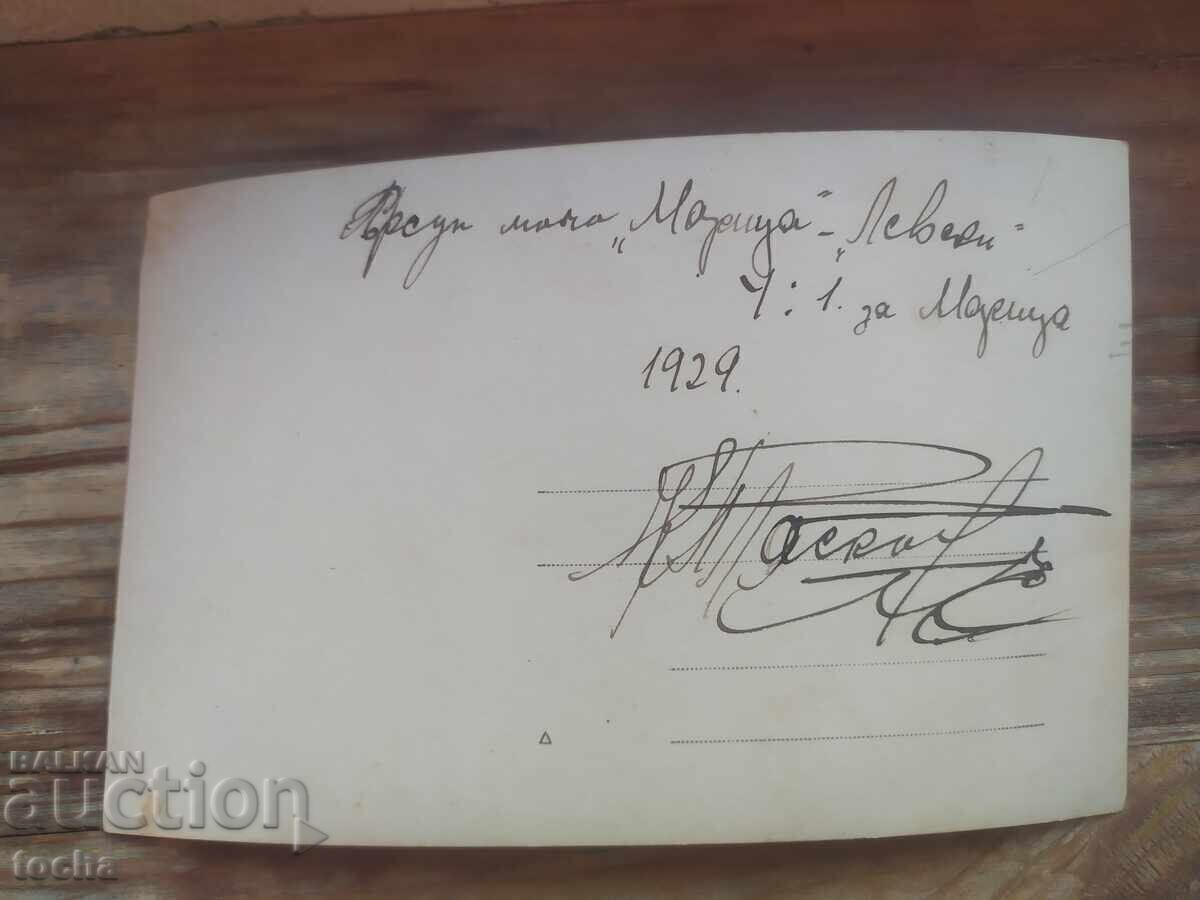 мачо „Марица" – „Левски"
4:1. за Марица
1929.
BALKAN
auction
tocha